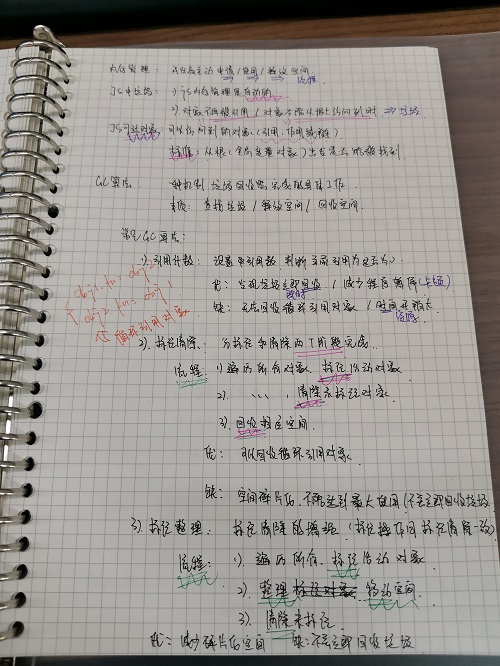 内存管理： 开发者主动申请 / 使用 / 释放空间
流程
JS中垃圾： 1) JS内存管理是自动的
2) 对象不再被引用 / 对象不能从根上访问到时 → 垃圾
JS可达对象 可以访问到的对象（引用、作用域链）
标准：从根（全局变量对象）出发是否能被找到
GC算法： 一种机制 垃圾回收器完成具体工作
本质：查找垃圾 / 释放空间 / 回收空间
常见GC算法：
1) 引用计数： 设置引用数，判断当前引用为是否为0
优：发现垃圾立即回收 / 减少程序暂停（卡顿）
即时
缺：无法回收循环引用对象 / 时间开销大
资源
obj1.fn = obj2
obj2.fn = obj1
循环引用对象
2) 标记清除： 分标记和清除两个阶段完成
流程： 1) 遍历所有对象，标记活动对象
2) 、、、，清除未标记对象
3) 回收相应空间
优： 可以回收循环引用对象
缺： 空间碎片化，不能达到最大使用（不会立即回收垃圾）
3) 标记整理： 标记清除的增强（标记操作同标记清除一致）
流程： 1) 遍历所有，标记活动对象
2) 整理 移动空间
3) 清除未标记
优：减少碎片化空间 缺：不会立即回收垃圾